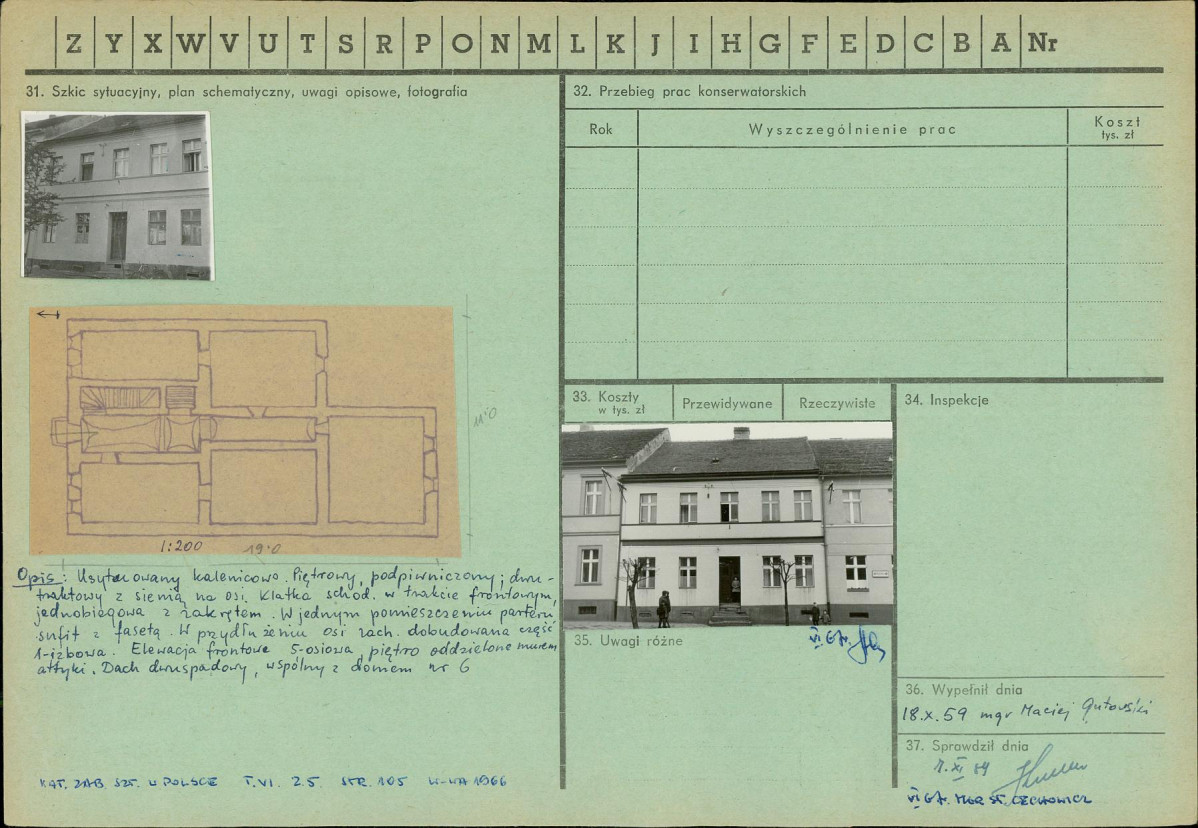 Z Y X W V U T S R P O N M L K J I H G F E D C B A Nr
31. Szkic sytuacyjny, plan schematyczny, uwagi opisowe, fotografia
1:200
19.0
11.0
Opis: Usytuowany kalenicowo. Piętrowy, podpiwniczony; dwu-
traktowy z sienią na osi. Klatka schod. w trakcie frontowym,
jednobiegowa z zakrętem. W jednym pomieszczeniu parteru
sufit z fasetą. W przydłużeniu osi zach. dobudowana część
1-izbowa. Elewacja frontowa 5-osiowa, piętro oddzielone murem
attyki. Dach dwuspadowy, wspólny z domem nr 6
KAT. ZAB. SZT. W POLSCE T. VI. Z 5. STR. 105 W-WA 1966
32. Przebieg prac konserwatorskich
Rok Wyszczególnienie prac Koszt
tys. zł
33. Koszty
w tys. zł
Przewidywane Rzeczywiste
34. Inspekcje
35. Uwagi różne
36. Wypełnił dnia
18.X.59 mgr Maciej Gutowski
37. Sprawdził dnia
MGR ST. CECHOWICZ